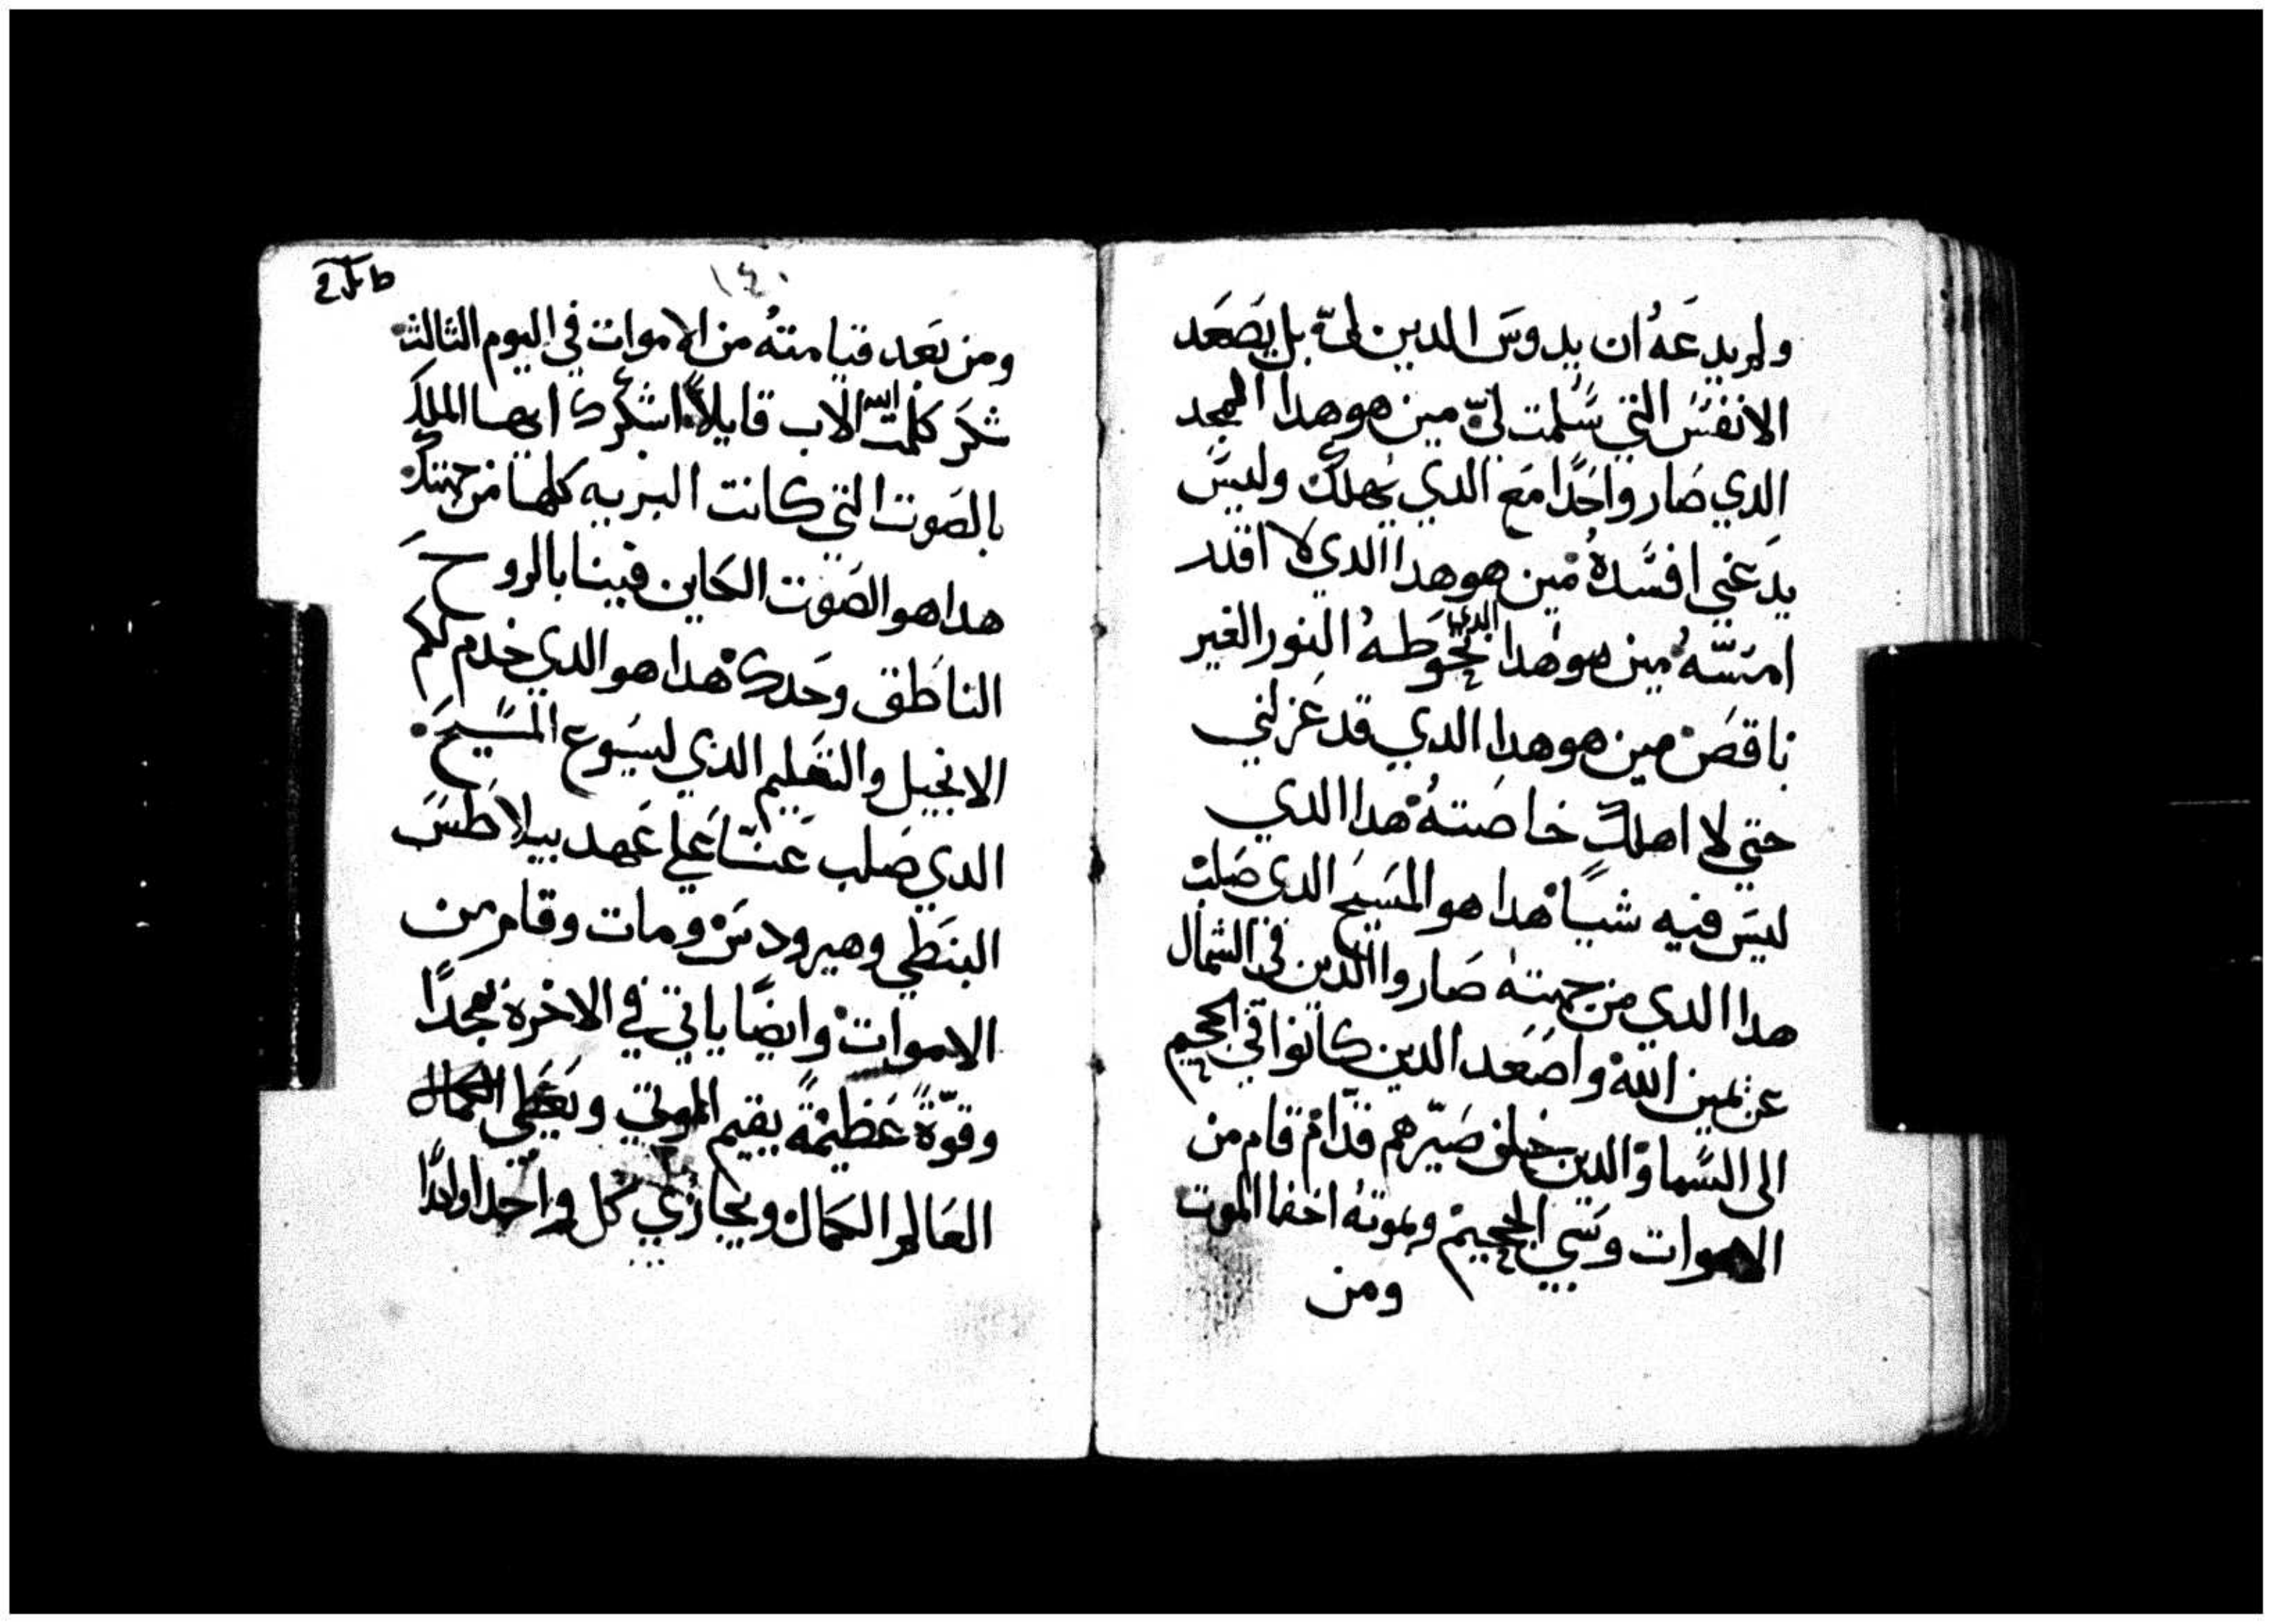 ولم يدعه ان يدوس الدين لي بل يصعد
الانفس التي سلمت لي مين هو هدا الممجد
الدي صار واحدًا مع الدي يهلك وليس
يدعني افسده مين هو هدا الدي لا اقدر
امسه مين هو هدا الدي تحوطه النور الغير
ناقص مين هو هدا الدي قد عزلني
حتي لا اهلك خاصته هدا الدي
ليس فيه شيًا هدا هو المسيح الدي صلب
هدا الدي من جهته صاروا الدين في الشمال
عن يمين الله واصعد الدين كانوا في الجحيم
الى السما والدين خلف صيّرهم قدّام قام من
الاموات وسبي الجحيم وبموته اخفا الموت
ومن
١٤٠
ومن بعد قيامته من الاموات في اليوم الثالث
شكر كلمت الله الاب قايلاً اشكرك ايها الملك
بالصوت التي كانت البريه كلها من جهتك
هدا هو الصوت الكاين فينا بالروح
الناطق وحدك هدا هو الدي خدم لكم
الانجيل والتعليم الذي ليسوع المسيح
الدي صلب عنا علي عهد بيلاطس
البنطي وهيرودس ومات وقام من
الاموات وايضًا ياتي في الاخرة بمجدًا
وقوّةً عظيمةً يقيم الموتي ويعطي
العالم الكمال ويجازي كل واحدا واحدًا